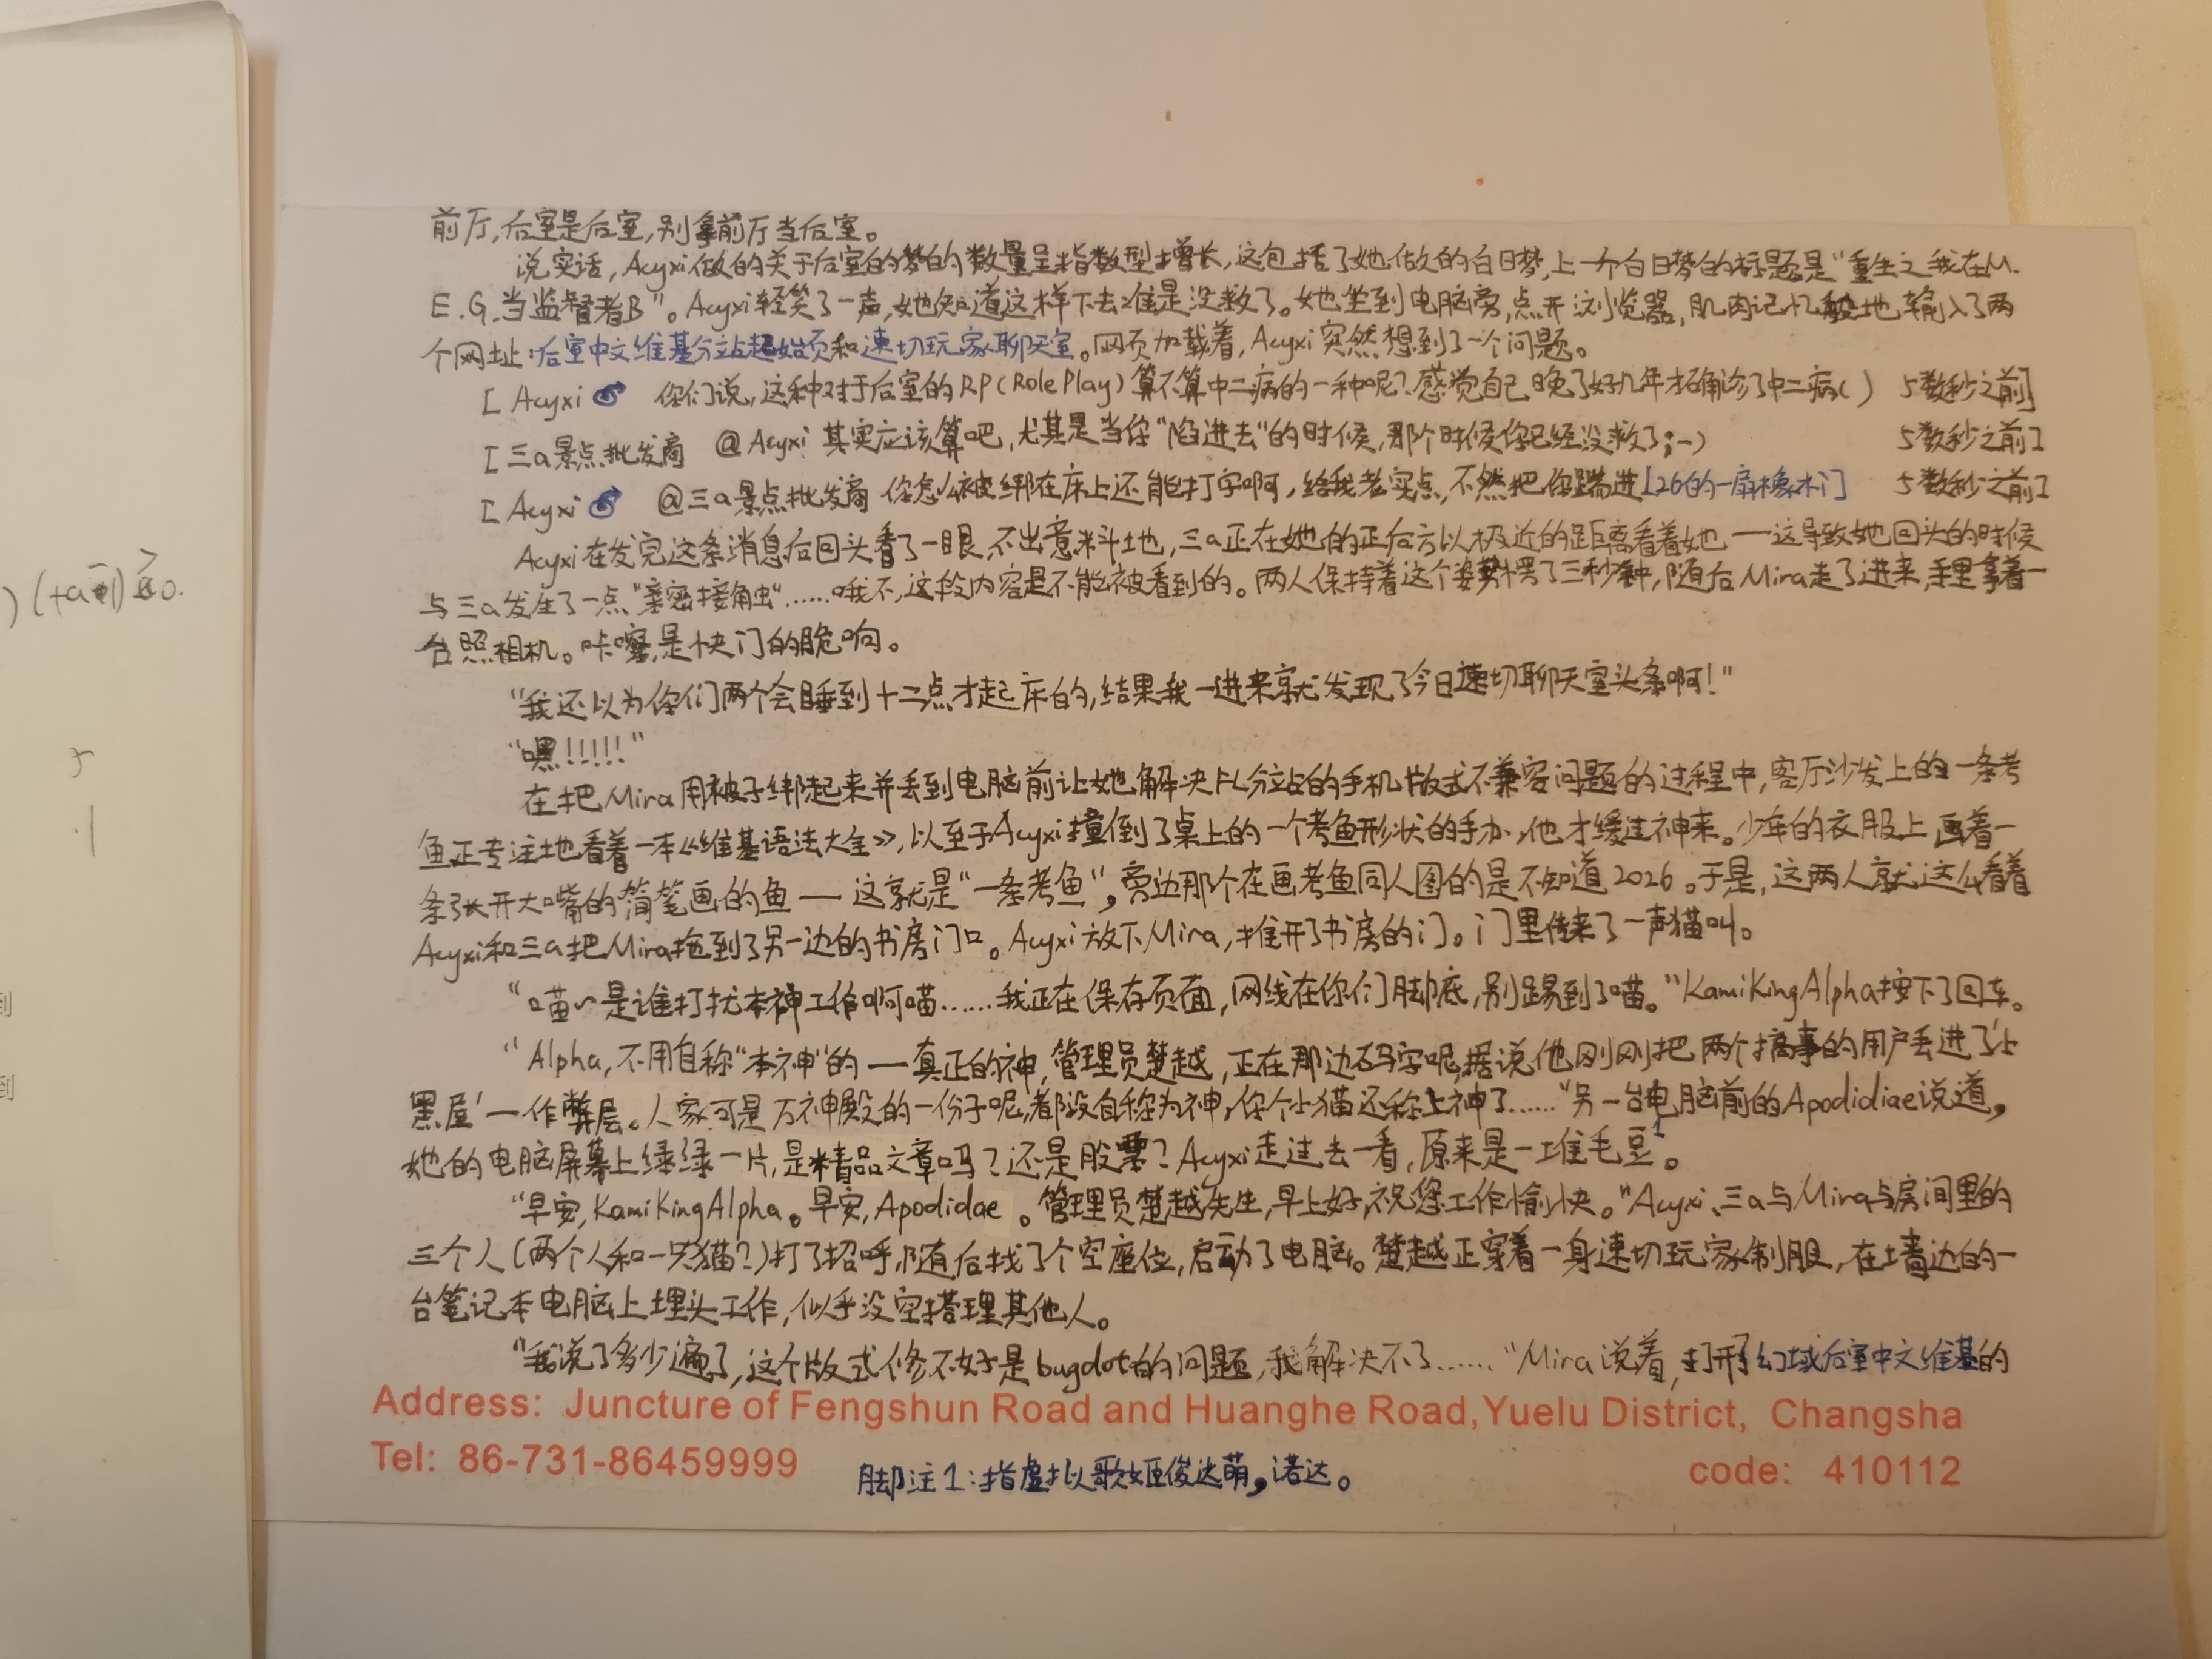 前厅,后室是后室,别拿前厅当后室。
说实话,Acyxi做的关于后室的梦的数量呈指数型增长,这包括了她做的白日梦,上一个白日梦的标题是"重生之我在M.
E.G.当监督者B"。Acyxi轻笑了一声,她知道这样下去准是没救了。她坐到电脑旁,点开浏览器,肌肉记忆般地输入了两
个网址:后室中文维基分站起始页和速切玩家聊天室。网页加载着,Acyxi突然想到了一个问题。
[ Acyxi 你们说,这种对于后室的RP(Role Play)算不算中二病的一种呢?感觉自己晚了好几年才确诊了中二病() 5数秒之前]
[ 三a景点批发商 @Acyxi 其实应该算吧,尤其是当你"陷进去"的时候,那个时候你已经没救了;-) 5数秒之前]
[ Acyxi @三a景点批发商 你怎么被绑在床上还能打字啊,给我老实点,不然把你踹进L26的一扇橡木门 5数秒之前]
Acyxi在发完这条消息后回头看了一眼,不出意料地,三a正在她的正后方以极近的距离看着她——这导致她回头的时候
与三a发生了一点"亲密接触"……哦不,这段内容是不能被看到的。两人保持着这个姿势愣了三秒钟,随后Mira走了进来,手里拿着一
台照相机。咔嚓,是快门的脆响。
"我还以为你们两个会睡到十二点才起床的,结果我一进来就发现了今日速切聊天室头条啊!"
"嘿!!!!!"
在把Mira用被子绑起来并丢到电脑前让她解决FL分站的手机版式不兼容问题的过程中,客厅沙发上的一条考
鱼正专注地看着一本《维基语法大全》,以至于Acyxi撞倒了桌上的一个考鱼形状的手办,他才缓过神来。少年的衣服上画着一
条张开大嘴的简笔画的鱼——这就是"一条考鱼",旁边那个在画考鱼同人图的是不知道2026。于是,这两人就这么看着
Acyxi和三a把Mira拖到了另一边的书房门口。Acyxi放下Mira,推开了书房的门。门里传来了一声猫叫。
"喵~是谁打扰本神工作啊喵……我正在保存页面,网线在你们脚底,别踢到了喵。"KamiKingAlpha按下了回车。
"Alpha,不用自称"本神"的——真正的神,管理员楚越,正在那边码字呢,据说他刚刚把两个搞事的用户丢进了'小
黑屋'——作弊层。人家可是万神殿的一份子呢,都没自称为神,你个小猫还称上神了……"另一台电脑前的Apodidiae说道,
她的电脑屏幕上绿绿一片,是精品文章吗?还是股票?Acyxi走过去一看,原来是一堆毛豆1。
"早安,KamiKingAlpha。早安,Apodidae。管理员楚越先生,早上好,祝您工作愉快。"Acyxi、三a与Mira与房间里的
三个人(两个人和一只猫?)打了招呼,随后找了个空座位,启动了电脑。楚越正穿着一身速切玩家制服,在墙边的一
台笔记本电脑上埋头工作,似乎没空搭理其他人。
"我说了多少遍了,这个版式修不好是bugdot的问题,我解决不了……"Mira说着,打开了幻域后室中文维基的
Address: Juncture of Fengshun Road and Huanghe Road, Yuelu District, Changsha
Tel: 86-731-86459999 code: 410112
脚注1:指虚拟歌姬俊达萌,诺达。